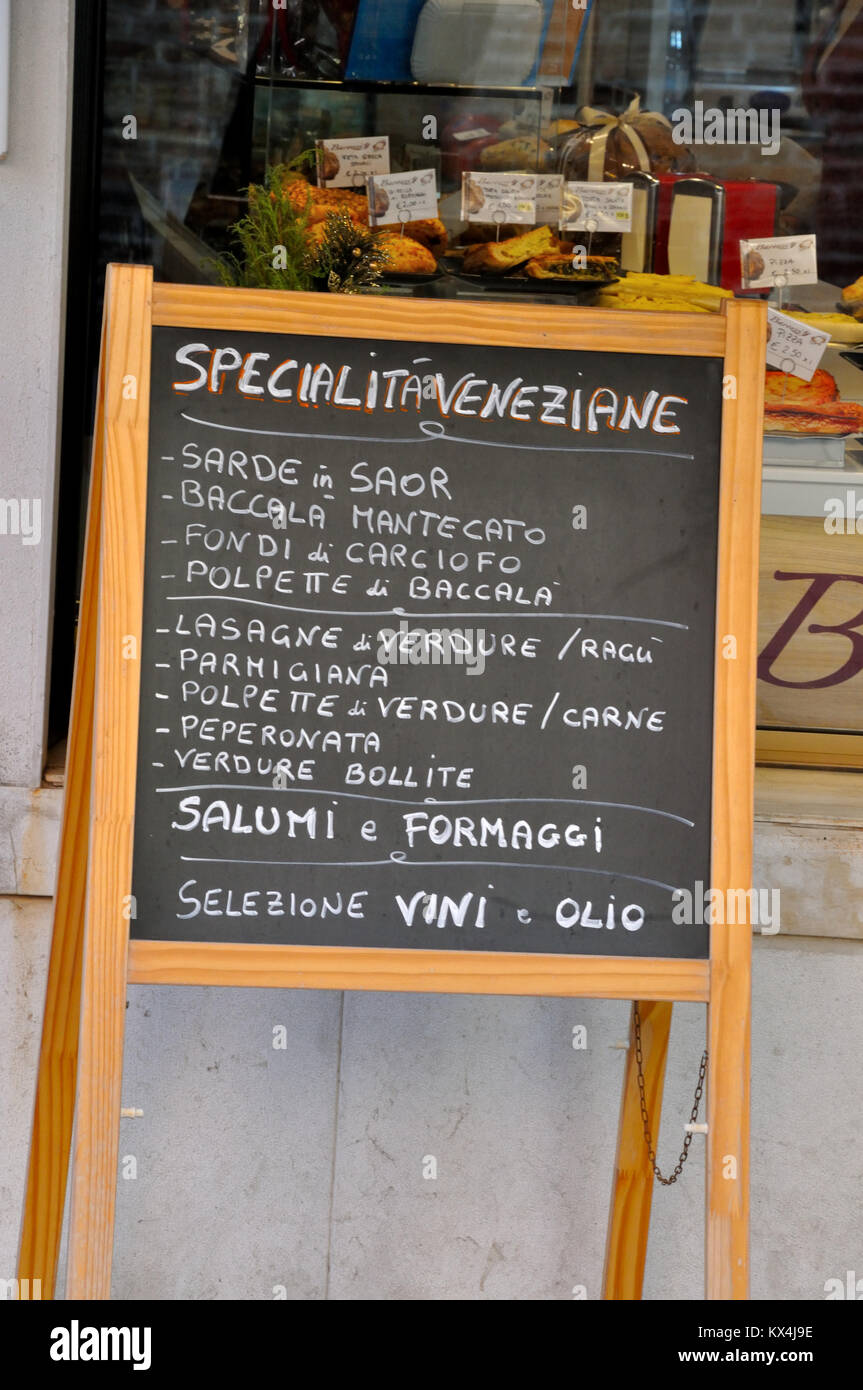 € 2,00
PIZZA
PIZZA
€ 2,50
SPECIALITÁ VENEZIANE
- SARDE in SAOR
- BACCALÀ MANTECATO
- FONDI di CARCIOFO
- POLPETTE di BACCALÀ
- LASAGNE di VERDURE / RAGÙ
- PARMIGIANA
- POLPETTE di VERDURE / CARNE
- PEPERONATA
- VERDURE BOLLITE
SALUMI e FORMAGGI
SELEZIONE VINI e OLIO
B
alamy
Image ID: KX4J9E
www.alamy.com